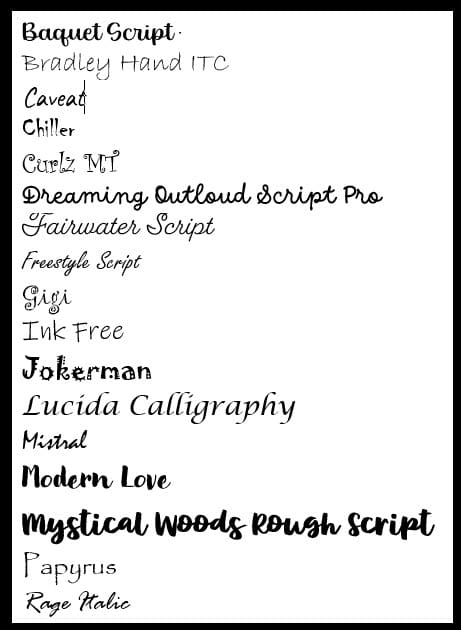 Baquet Script
Bradley Hand ITC
Caveat
Chiller
Curlz MT
Dreaming Outloud Script Pro
Fairwater Script
Freestyle Script
Gigi
Ink Free
Jokerman
Lucida Calligraphy
Mistral
Modern Love
Mystical Woods Rough Script
Papyrus
Rage Italic